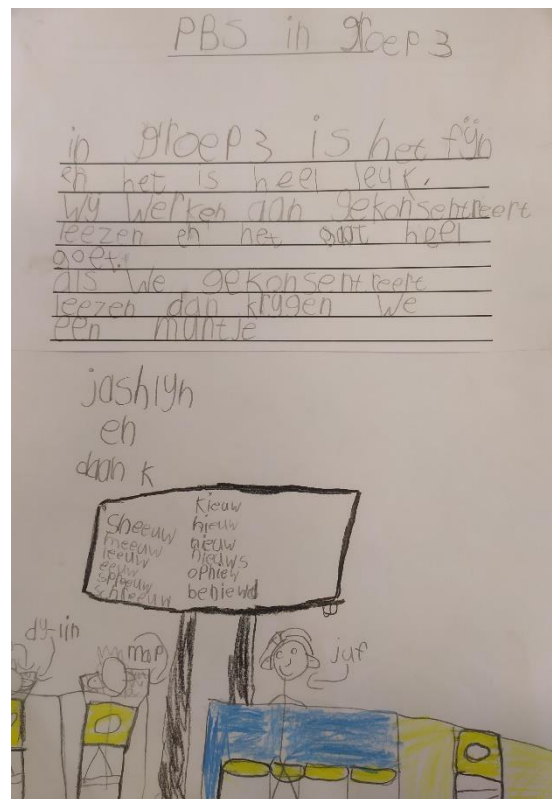 PBS in groep 3
in groep 3 is het fijn
en het is heel leuk.
wij werken aan gekonsentreert
leezen en het gaat heel
goet.
als we gekonsentreert
leezen dan krijgen we
een muntje
jashlyn
en
daan k
sneeuw
meeuw
leeuw
eeuw
spreeuw
schreeuw
kieuw
hieuw
nieuw
nieuws
opniew
beniewd
juf